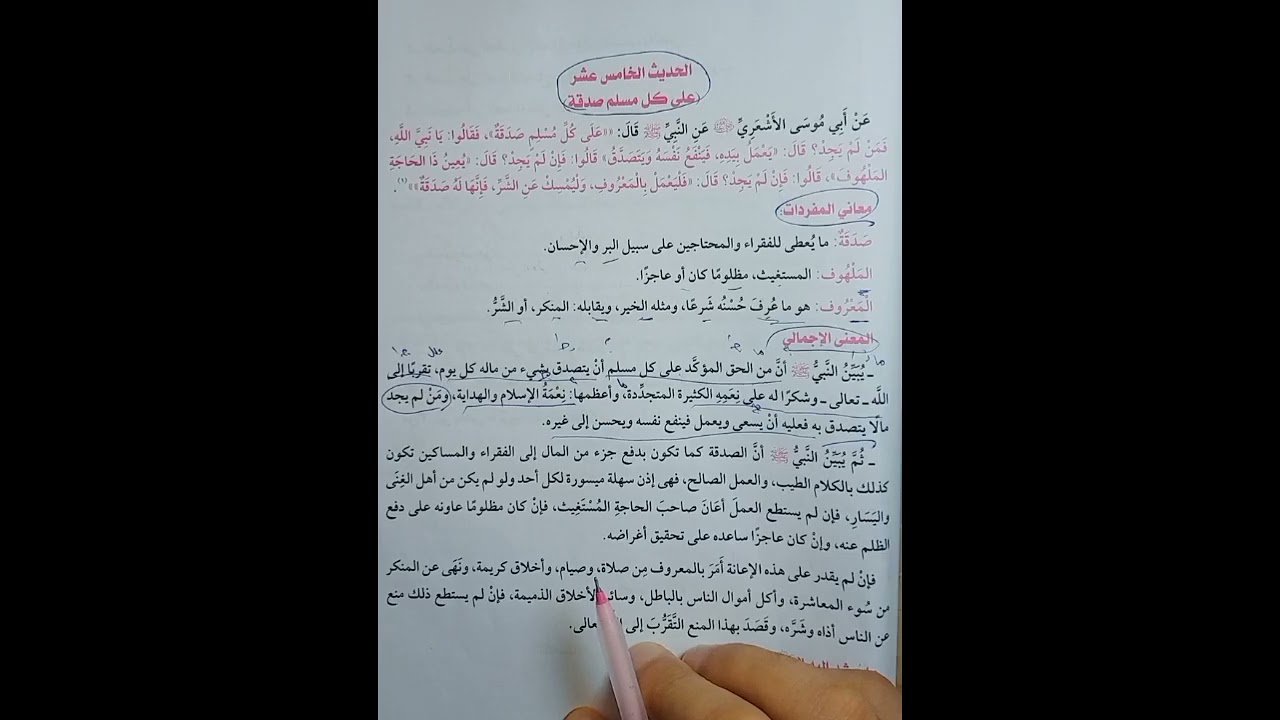 الحديث الخامس عشر
(على كل مسلم صدقة)
عَنْ أَبِي مُوسَى الأَشْعَرِيِّ عَنِ النَّبِيِّ ﷺ قَالَ: ««عَلَى كُلِّ مُسْلِمٍ صَدَقَةٌ»، فَقَالُوا: يَا نَبِيَّ اللَّهِ،
فَمَنْ لَمْ يَجِدْ؟ قَالَ: «يَعْمَلُ بِيَدِهِ، فَيَنْفَعُ نَفْسَهُ وَيَتَصَدَّقُ» قَالُوا: فَإِنْ لَمْ يَجِدْ؟ قَالَ: «يُعِينُ ذَا الحَاجَةِ
المَلْهُوفَ»، قَالُوا: فَإِنْ لَمْ يَجِدْ؟ قَالَ: «فَلْيَعْمَلْ بِالْمَعْرُوفِ، وَلْيُمْسِكْ عَنِ الشَّرِّ، فَإِنَّهَا لَهُ صَدَقَةٌ»»(١).
معاني المفردات:
صَدَقَةٌ: ما يُعطى للفقراء والمحتاجين على سبيل البر والإحسان.
المَلْهُوف: المستغيث، مظلومًا كان أو عاجزًا.
الْمَعْرُوف: هو ما عُرِفَ حُسْنُه شَرعًا، ومثله الخير، ويقابله: المنكر، أو الشَّرُّ.
المعنى الإجمالي
ـ يُبَيِّنُ النَّبيُّ ﷺ أنَّ من الحق المؤكَّد على كل مسلم أنْ يتصدق بشيء من ماله كل يوم، تقربًا إلى
اللَّه ـ تعالى ـ وشكرًا له على نِعَمِهِ الكثيرة المتجدِّدة، وأعظمها: نِعْمَةُ الإسلام والهداية، ومَنْ لم يجد
مالًا يتصدق به فعليه أنْ يسعى ويعمل فينفع نفسه ويحسن إلى غيره.
ـ ثُمَّ يُبَيِّنُ النَّبيُّ ﷺ أنَّ الصدقة كما تكون بدفع جزء من المال إلى الفقراء والمساكين تكون
كذلك بالكلام الطيب، والعمل الصالح، فهى إذن سهلة ميسورة لكل أحد ولو لم يكن من أهل الغِنَى
واليَسَارِ، فإن لم يستطع العملَ أعَانَ صاحبَ الحاجةِ المُسْتَغِيث، فإنْ كان مظلومًا عاونه على دفع
الظلم عنه، وإنْ كان عاجزًا ساعده على تحقيق أغراضه.
فإنْ لم يقدر على هذه الإعانة أَمَرَ بالمعروف مِن صلاة، وصيام، وأخلاق كريمة، ونَهَى عن المنكر
من سُوء المعاشرة، وأكل أموال الناس بالباطل، وسائر الأخلاق الذميمة، فإنْ لم يستطع ذلك منع
عن الناس أذاه وشَرَّه، وقَصَدَ بهذا المنع التَّقَرُّبَ إلى تعالى.